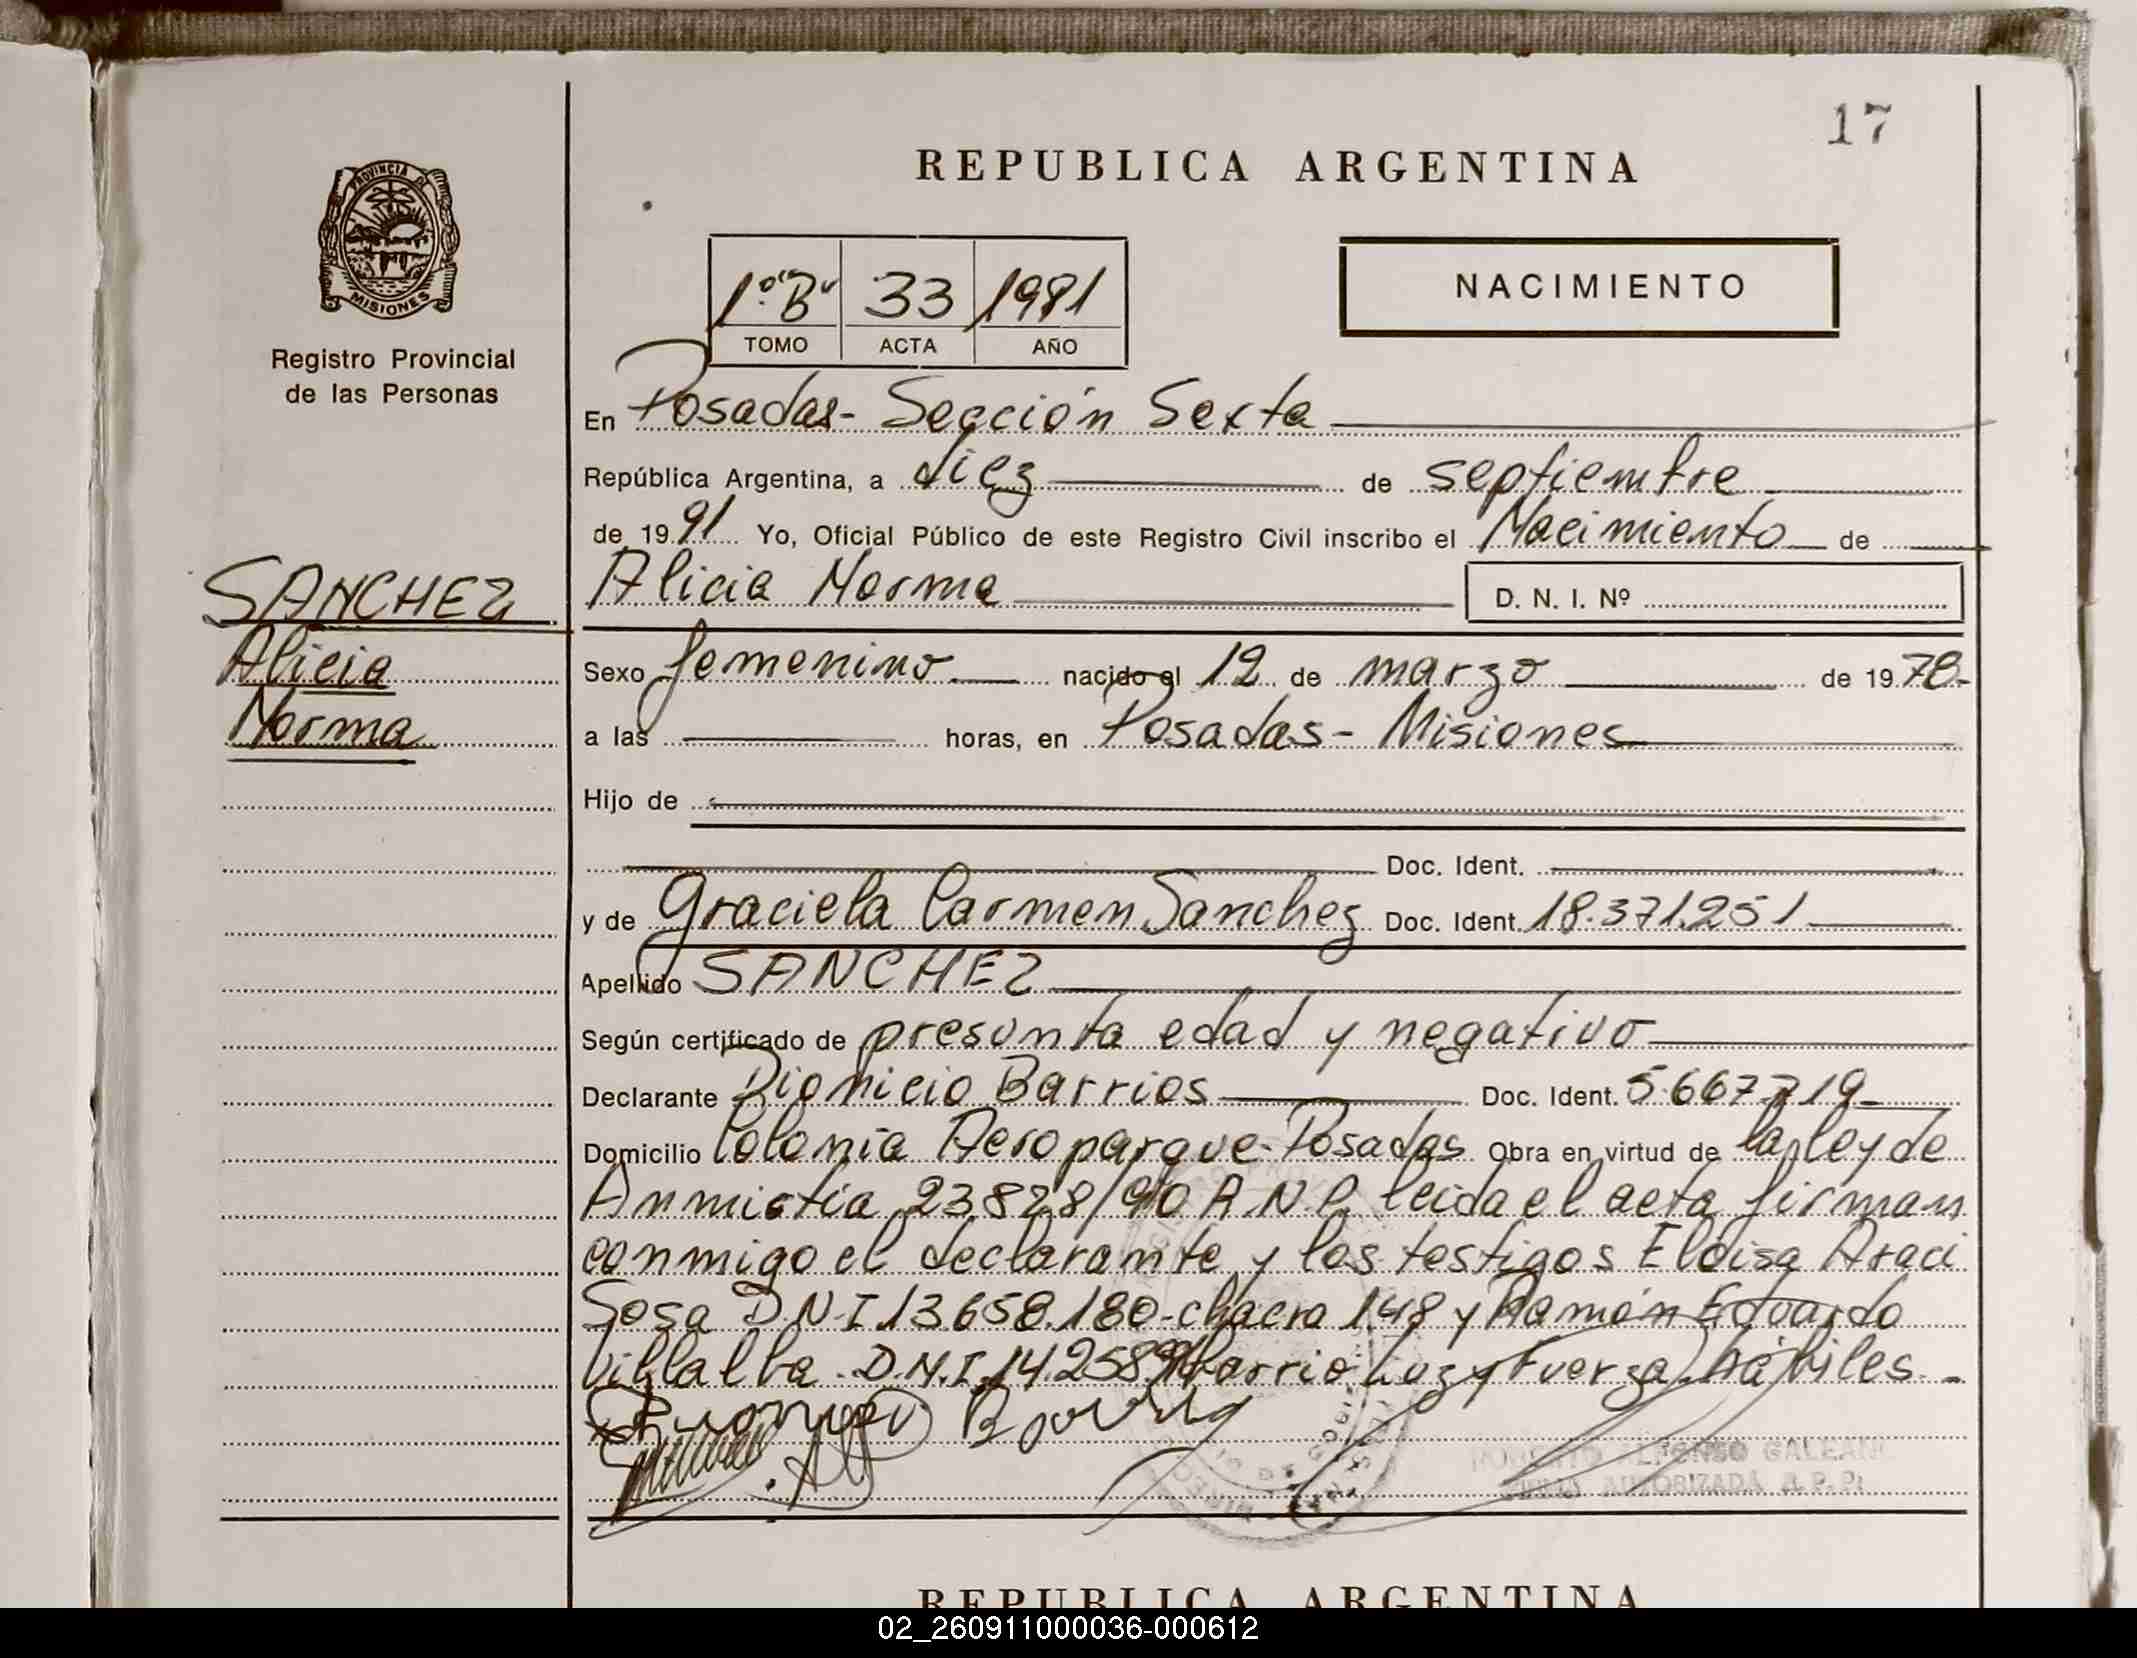 17
REPUBLICA ARGENTINA
PROVINCIA DE
MISIONES
Registro Provincial
de las Personas
1º "B" 33 1981
TOMO ACTA AÑO
NACIMIENTO
En Posadas - Sección Sexta
República Argentina, a diez de septiembre
de 1991 Yo, Oficial Público de este Registro Civil inscribo el Nacimiento de
SANCHEZ
Alicia
Norma
Alicia Norma D. N. I. Nº
Sexo femenino nacido el 12 de marzo de 1978-
a las horas, en Posadas - Misiones
Hijo de
Doc. Ident.
y de Graciela Carmen Sanchez Doc. Ident. 18.371.251
Apellido SANCHEZ
Según certificado de presunta edad y negativo
Declarante Dionicio Barrios Doc. Ident. 5.667.719-
Domicilio Colonia Aeroparque - Posadas Obra en virtud de la ley de
Anmistia 23828/90 A.N.P. leida el acta firman
conmigo el declarante y los testigos Eloisa Araci
Sosa D.N.I. 13.658.180 - chacra 148 y Ramón Eduardo
Villalba - D.N.I. 14.258. barrio Luz y Fuerza. Hábiles. -
ROBERTO ALFONSO GALEANO
FIRMA AUTORIZADA R. P. P.
REPUBLICA ARGENTINA
02_260911000036-000612